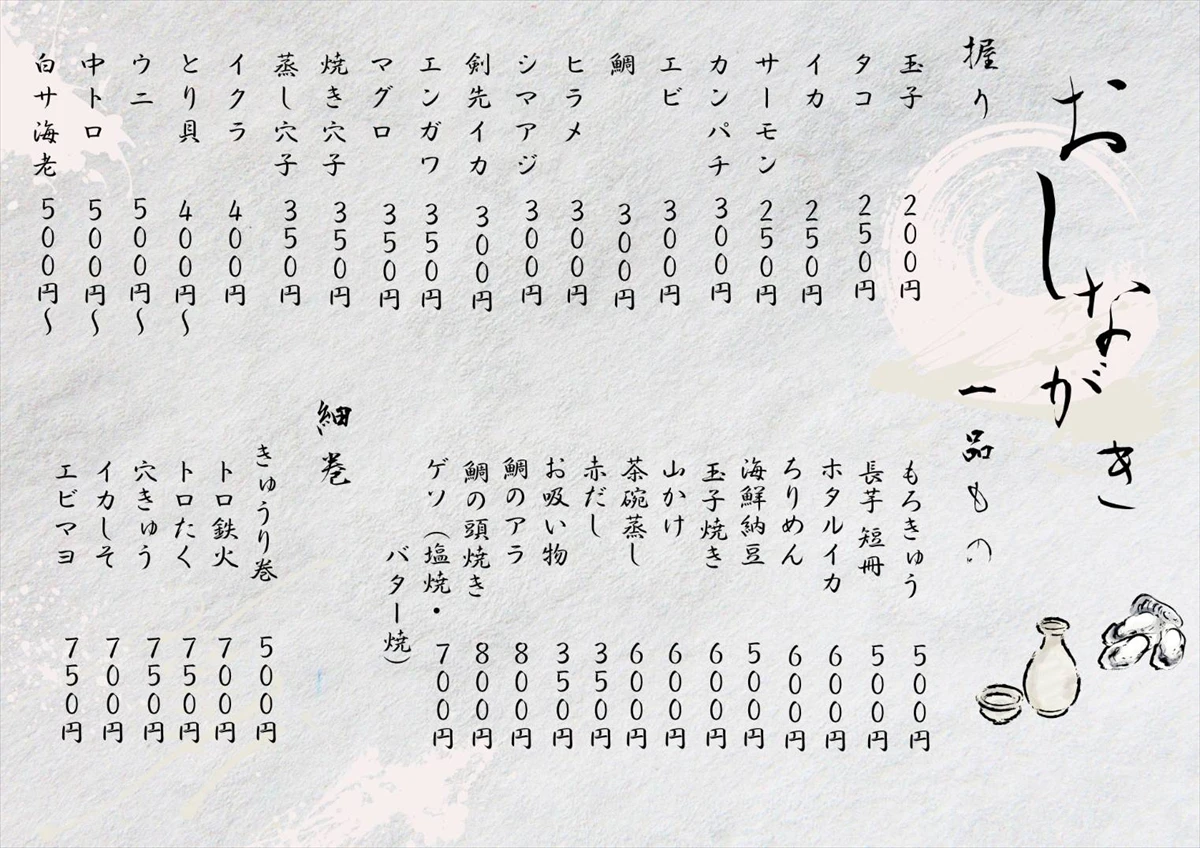 おしながき
握り
玉子 200円
タコ 250円
イカ 250円
サーモン 250円
カンパチ 300円
エビ 300円
鯛 300円
ヒラメ 300円
シマアジ 300円
剣先イカ 300円
エンガワ 350円
マグロ 350円
焼き穴子 350円
蒸し穴子 350円
イクラ 400円
とり貝 400円〜
ウニ 500円〜
中トロ 500円〜
白サ海老 500円〜
一品もの
もろきゅう 500円
長芋 短冊 500円
ホタルイカ 600円
ちりめん 600円
海鮮納豆 500円
玉子焼き 600円
山かけ 600円
茶碗蒸し 600円
赤だし 350円
お吸い物 350円
鯛のアラ 800円
鯛の頭焼き 800円
ゲソ（塩焼・ 700円
バター焼）
細巻
きゅうり巻 500円
トロ鉄火 700円
トロたく 750円
穴きゅう 750円
イカしそ 700円
エビマヨ 750円